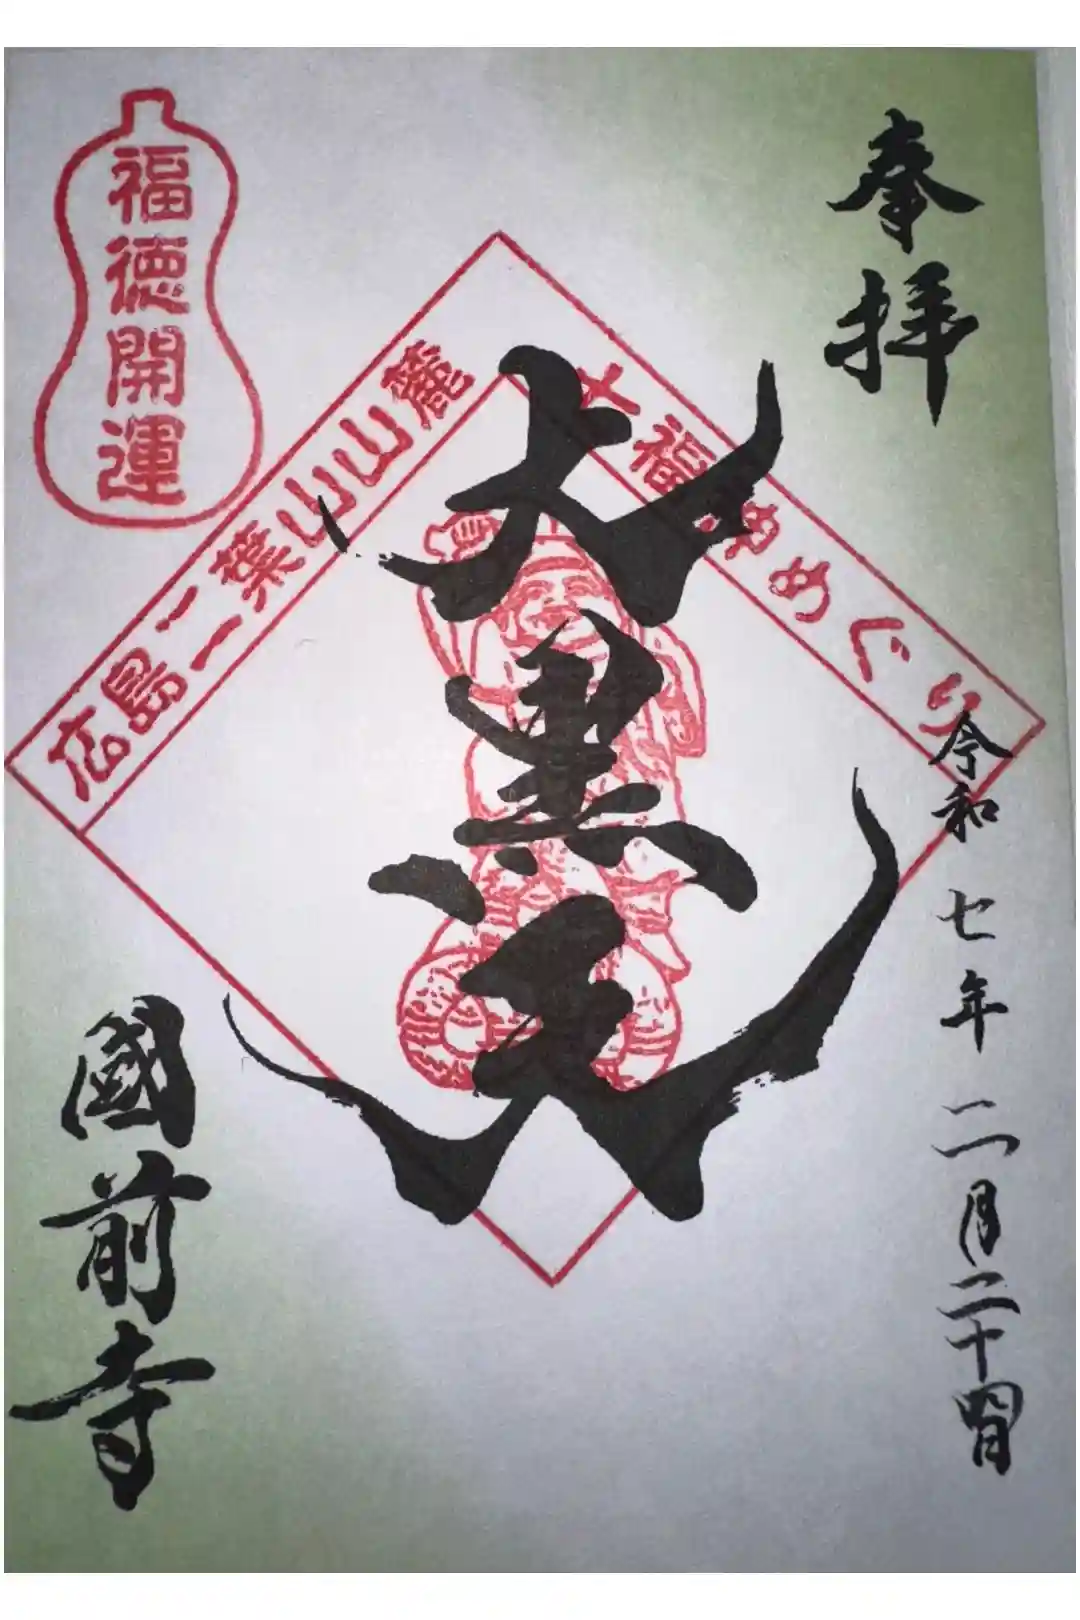 奉拝
令和七年二月二十四日
大黒天
七福神めぐり
広島二葉山山麓
福徳開運
國前寺